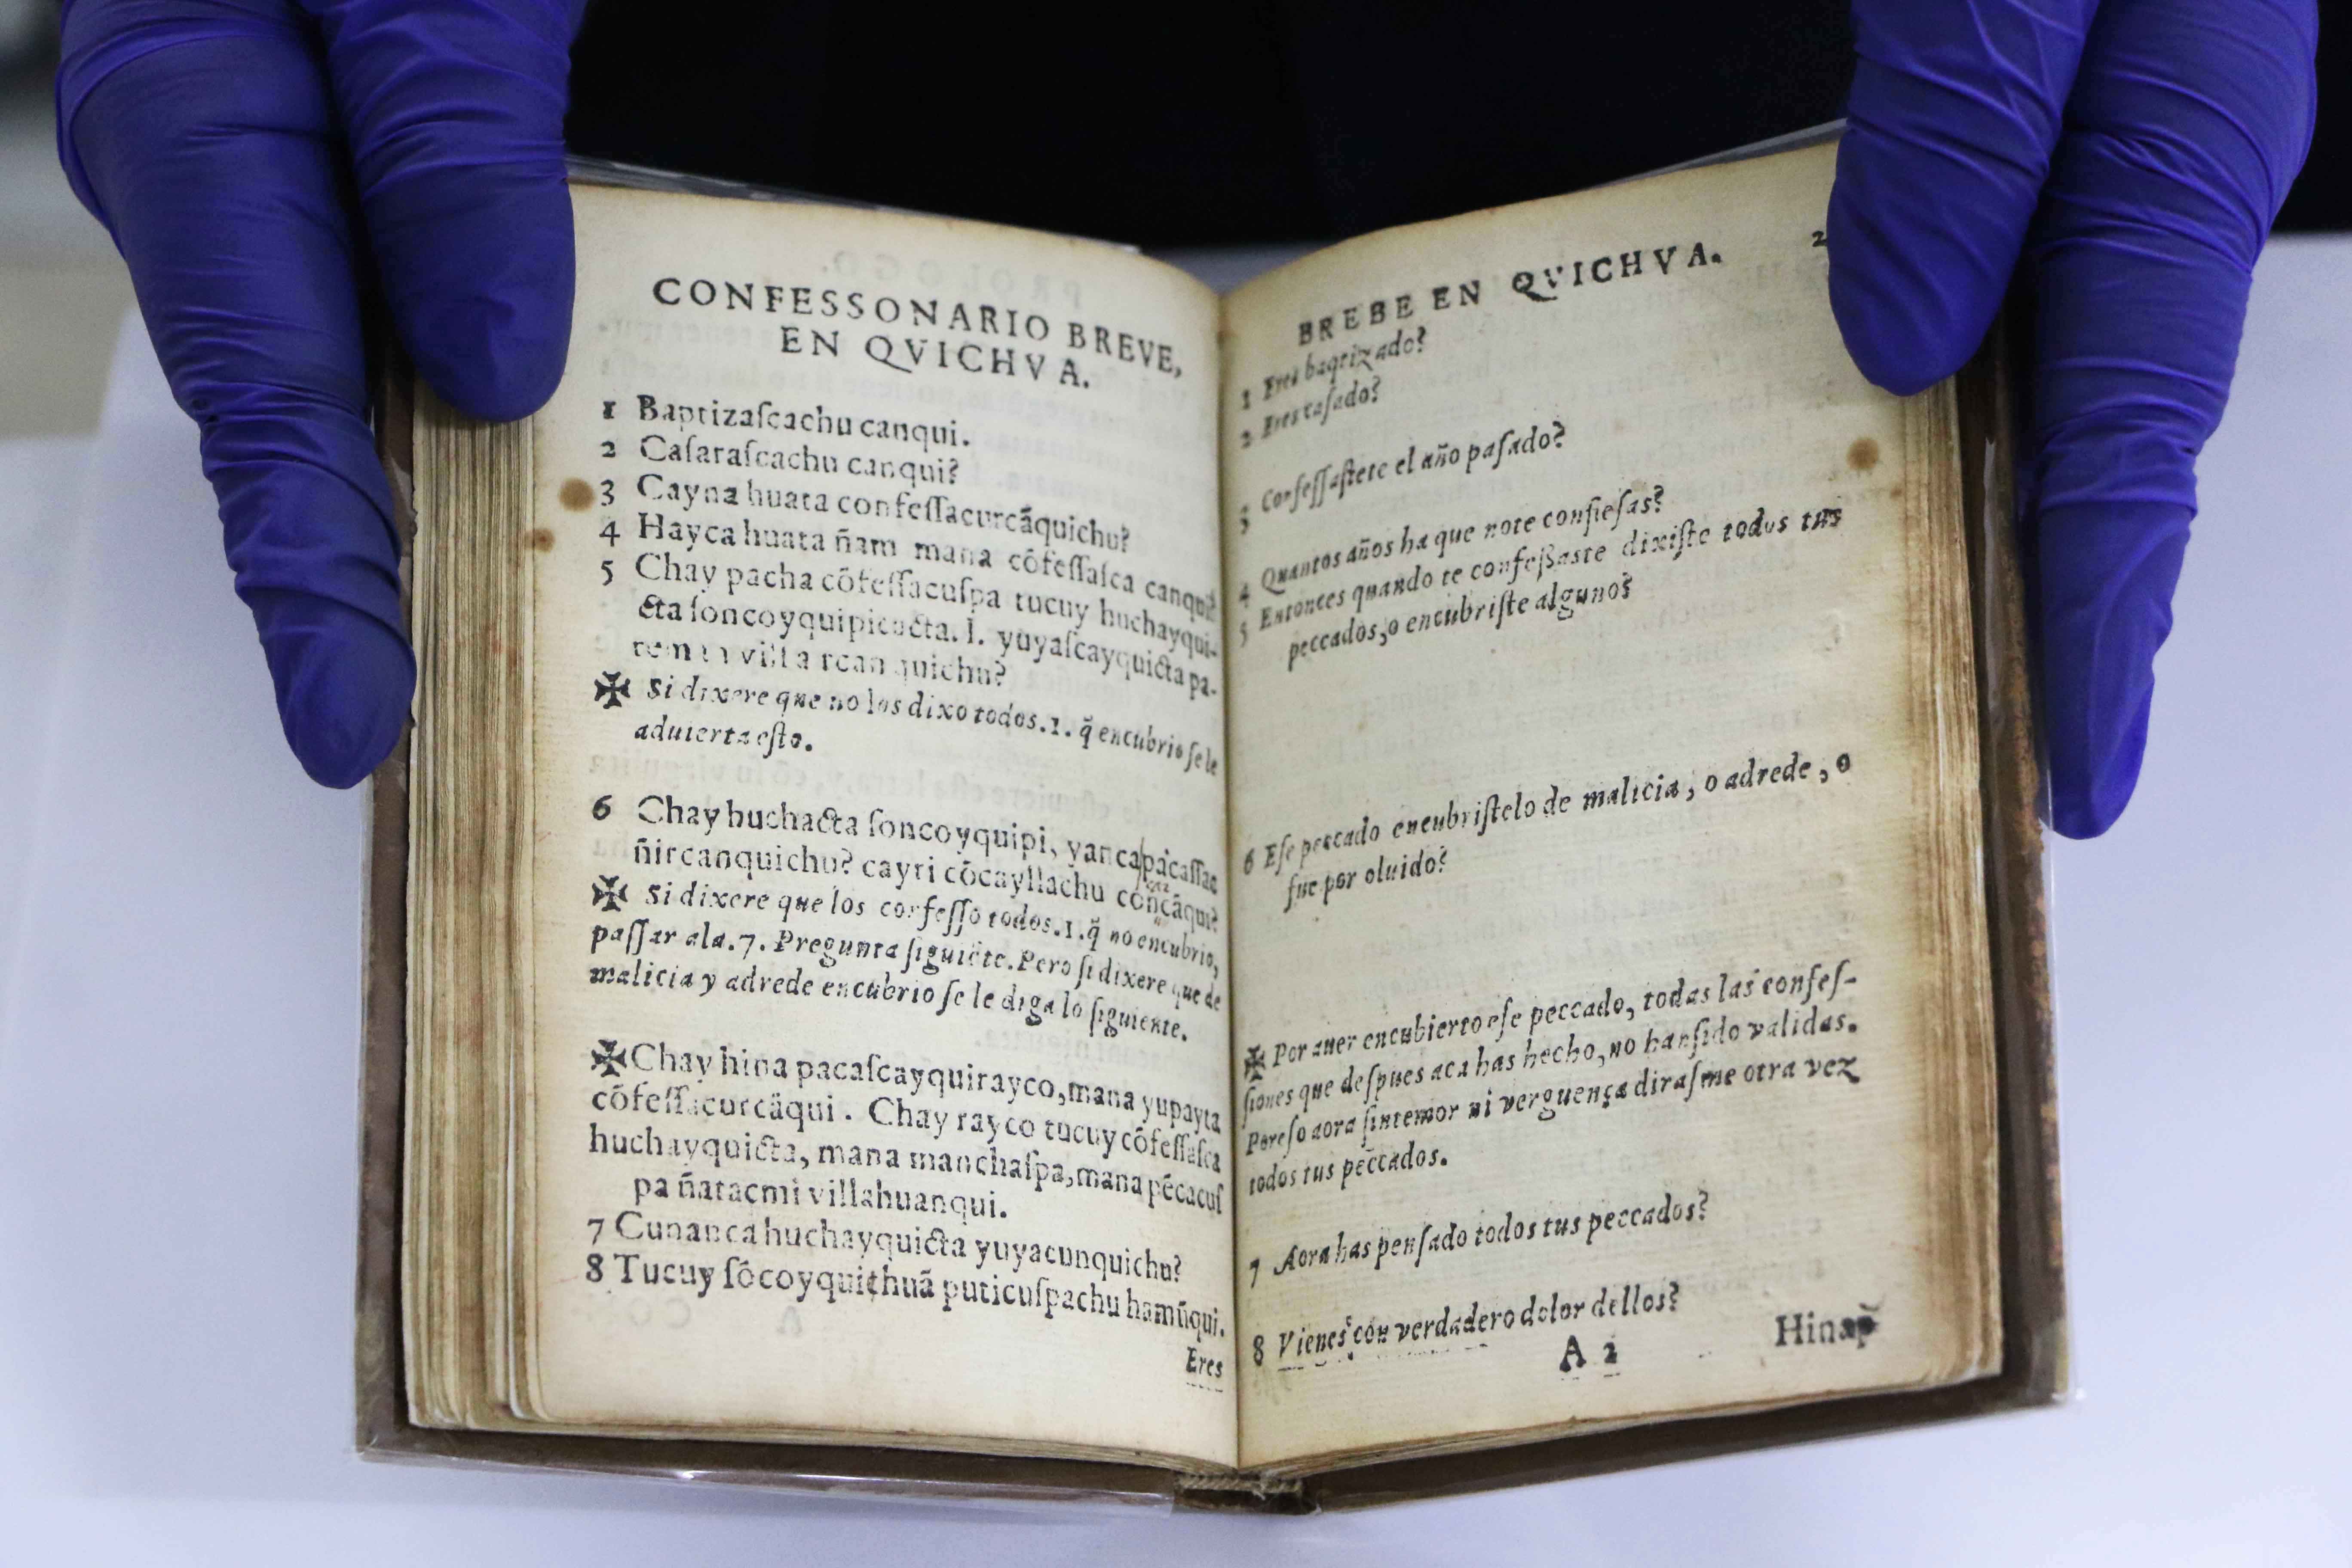 CONFESSONARIO BREVE,
EN QVICHVA.
1 Baptizaſcachu canqui.
2 Caſaraſcachu canqui?
3 Cayna huata confeſſacurcãquichu?
4 Hayca huata ñam mana cõfeſſaſca canqui?
5 Chay pacha cõfeſſacuſpa tucuy huchayqui-
cta ſoncoyquipicacta. I. yuyaſcayquicta pa-
villarcanquichu?
✠ Si dixere que no los dixo todos.1. q̃ encubrio ſe le
aduierta eſto.
6 Chay huchacta ſoncoyquipi, yanca pacaſſac
ñircanquichu? cayri cõcayllachu concãqui?
✠ Si dixere que los confeſſo todos.1. q̃ no encubrio,
paſſar ala.7. Pregunta ſiguiẽte. Pero ſi dixere que de
malicia y adrede encubrio ſe le diga lo ſiguiente.
✠ Chay hina pacaſcayquirayco, mana yupayta
cõfeſſacurcãqui. Chay rayco tucuy cõfeſſaſca
huchayquicta, mana manchaſpa, mana pẽcacuſ
pa ñatacmi villahuanqui.
7 Cunanca huchayquicta yuyacunquichu?
8 Tucuy ſõcoyquichuã puticuſpachu hamũqui.
Eres
BREBE EN QVICHVA. 2
1 Eres baptizado?
2 Eres caſado?
3 Confeſſaſtete el año paſado?
4 Quantos años ha que no te confieſas?
5 Entonces quando te confeßaste dixiſte todos tus
peccados, o encubriſte algunos?
6 Eſe peccado encubriſtelo de malicia, o adrede, o
fue por oluido?
✠ Por auer encubierto eſe peccado, todas las confeſ-
ſiones que deſpues aca has hecho, no han ſido validas.
Por eſo aora ſin temor ni verguença diraſme otra vez
todos tus peccados.
7 Aora has penſado todos tus peccados?
8 Vienes con verdadero dolor dellos?
A 2 Hinap